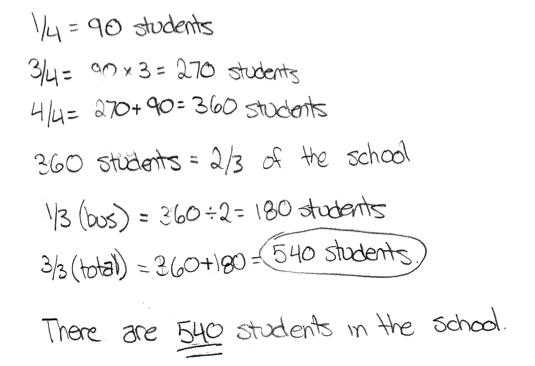 1/4 = 90 students
3/4 = 90 x 3 = 270 students
4/4 = 270 + 90 = 360 students
360 students = 2/3 of the school
1/3 (bus) = 360 ÷ 2 = 180 students
3/3 (total) = 360 + 180 = 540 students.
There are 540 students in the school.